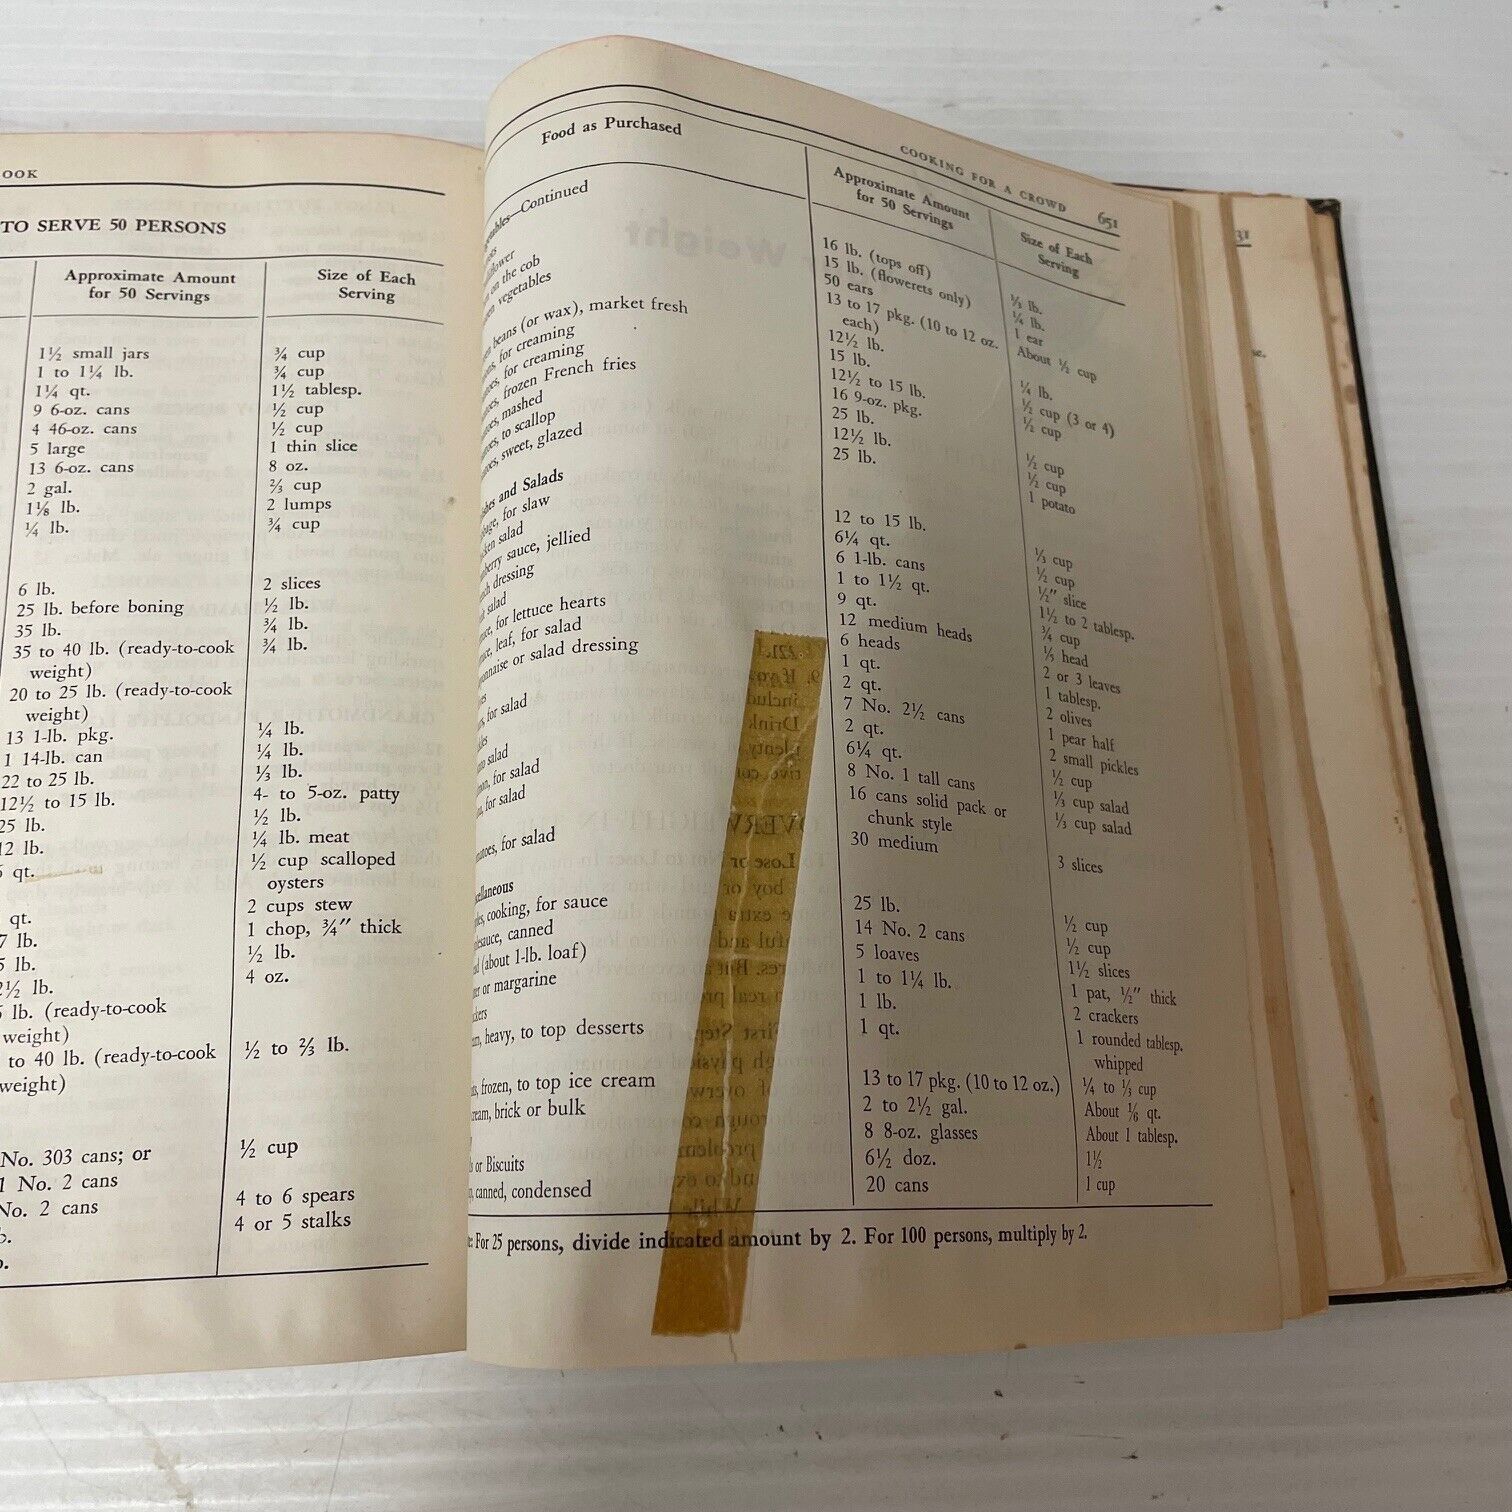 OOK
TO SERVE 50 PERSONS
Approximate Amount for 50 Servings Size of Each Serving
1½ small jars ¾ cup
1 to 1¼ lb. ¾ cup
1¼ qt. 1½ tablesp.
9 6-oz. cans ½ cup
4 46-oz. cans ½ cup
5 large 1 thin slice
13 6-oz. cans 8 oz.
2 gal. ⅔ cup
1⅛ lb. 2 lumps
¼ lb. ¾ cup
6 lb. 2 slices
25 lb. before boning ½ lb.
35 lb. ¾ lb.
35 to 40 lb. (ready-to-cook ¾ lb.
weight)
20 to 25 lb. (ready-to-cook
weight)
13 1-lb. pkg. ¼ lb.
1 14-lb. can ¼ lb.
22 to 25 lb. ⅓ lb.
12½ to 15 lb. 4- to 5-oz. patty
25 lb. ½ lb.
12 lb. ¼ lb. meat
qt. ½ cup scalloped
oysters
qt. 2 cups stew
lb. 1 chop, ¾" thick
lb. ½ lb.
lb. 4 oz.
lb. (ready-to-cook
weight)
to 40 lb. (ready-to-cook ½ to ⅔ lb.
weight)
No. 303 cans; or ½ cup
1 No. 2 cans
No. 2 cans 4 to 6 spears
4 or 5 stalks
COOKING FOR A CROWD 651
Food as Purchased
Approximate Amount for 50 Servings
Size of Each Serving
—Continued
16 lb. (tops off) ⅓ lb.
15 lb. (flowerets only) ¼ lb.
on the cob 50 ears 1 ear
vegetables 13 to 17 pkg. (10 to 12 oz. About ½ cup
each)
beans (or wax), market fresh 12½ lb. ¼ lb.
for creaming 15 lb. ½ cup (3 or 4)
for creaming 12½ to 15 lb. ½ cup
frozen French fries 16 9-oz. pkg.
mashed 25 lb. ½ cup
to scallop 12½ lb. ½ cup
sweet, glazed 25 lb. 1 potato
and Salads
for slaw 12 to 15 lb. ⅓ cup
salad 6¼ qt. ½ cup
sauce, jellied 6 1-lb. cans ½" slice
dressing 1 to 1½ qt. 1½ to 2 tablesp.
salad 9 qt. ¾ cup
for lettuce hearts 12 medium heads ⅕ head
leaf, for salad 6 heads 2 or 3 leaves
or salad dressing 1 qt. 1 tablesp.
2 qt. 2 olives
for salad 7 No. 2½ cans 1 pear half
2 qt. 2 small pickles
salad 6¼ qt. ½ cup
for salad 8 No. 1 tall cans ⅓ cup salad
for salad 16 cans solid pack or ⅓ cup salad
chunk style
for salad 30 medium 3 slices
cooking, for sauce 25 lb. ½ cup
canned 14 No. 2 cans ½ cup
(about 1-lb. loaf) 5 loaves 1½ slices
or margarine 1 to 1¼ lb. 1 pat, ½" thick
1 lb. 2 crackers
heavy, to top desserts 1 qt. 1 rounded tablesp.
whipped
frozen, to top ice cream 13 to 17 pkg. (10 to 12 oz.) ¼ to ⅓ cup
brick or bulk 2 to 2½ gal. About ⅙ qt.
8 8-oz. glasses About 1 tablesp.
or Biscuits 6½ doz. 1½
canned, condensed 20 cans 1 cup
For 25 persons, divide indicated amount by 2. For 100 persons, multiply by 2.
31